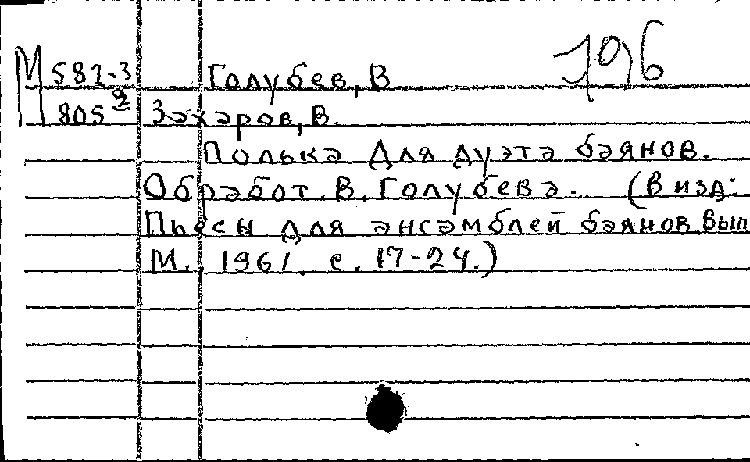 М 581-3 Голубев, В 196
805 Захаров, В.
Полька Для дуэта баянов.
Обработ. В. Голубева. (В изд:
Пьесы для ансамблей баянов. Вып
М., 1961. с. 17-24.)